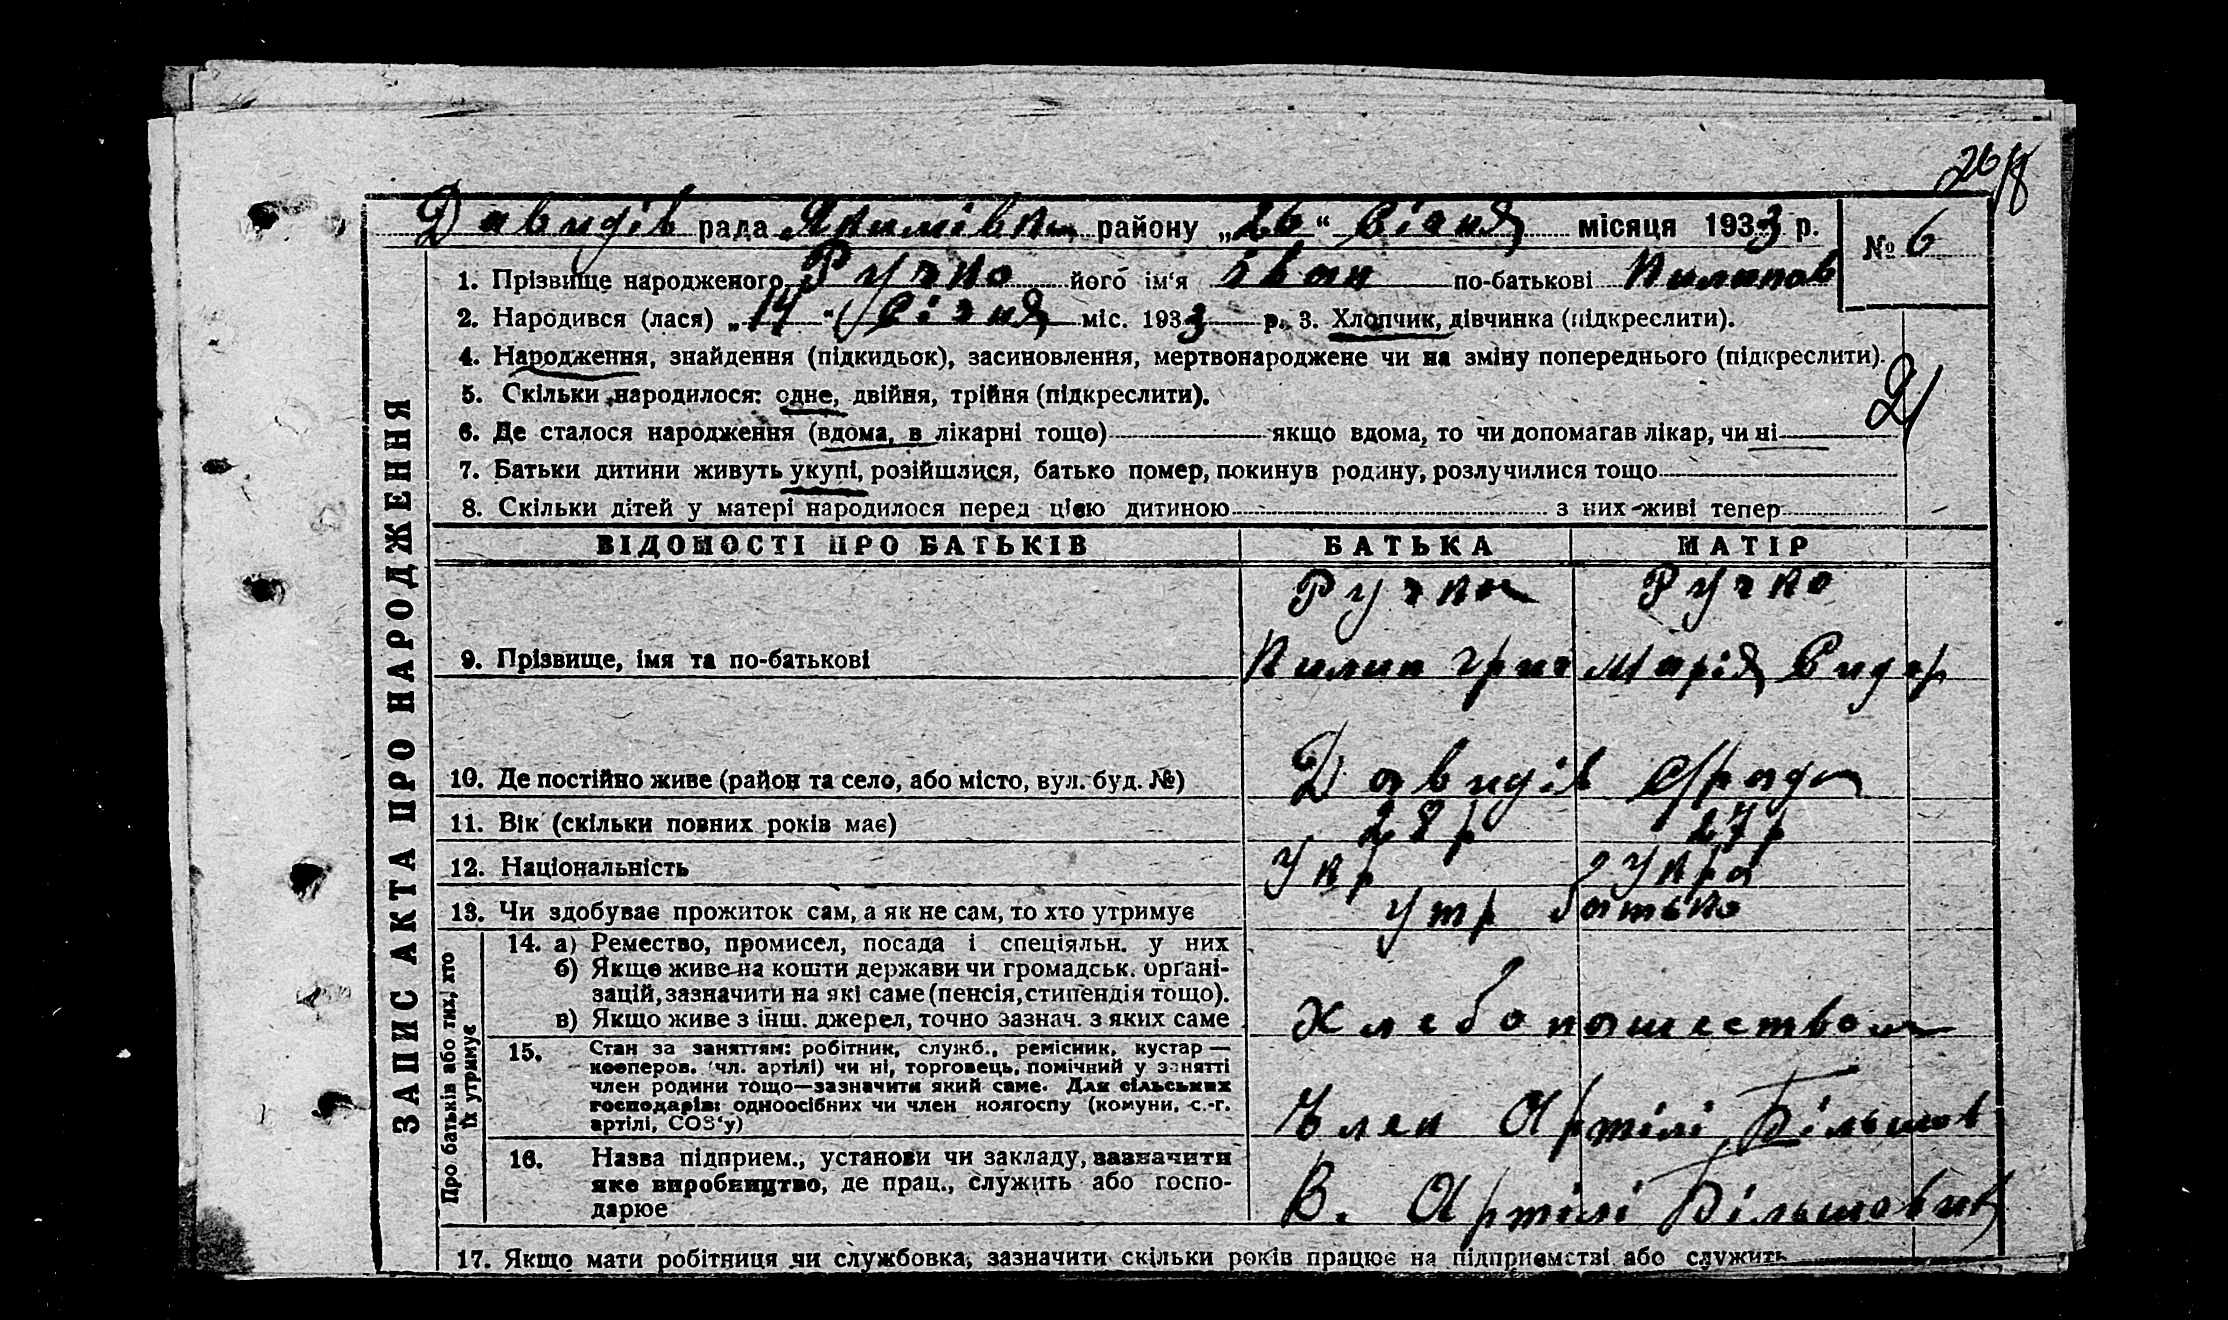 26/8
Давидів рада Якимівки району „26“ Січня місяця 1933 р. № 6
1. Прізвище народженого Ручко його ім'я Іван по-батькові Пилипов
2. Народився (лася) „14“ Січня міс. 1933 р. 3. Хлопчик, дівчинка (підкреслити).
4. Народження, знайдення (підкидьок), засиновлення, мертвонароджене чи на зміну попереднього (підкреслити).
5. Скільки народилося: одне, двійня, трійня (підкреслити).
6. Де сталося народження (вдома, в лікарні тощо) якщо вдома, то чи допомагав лікар, чи ні
7. Батьки дитини живуть укупі, розійшлися, батько помер, покинув родину, розлучилися тощо
8. Скільки дітей у матері народилося перед цією дитиною з них живі тепер
ЗАПИС АКТА ПРО НАРОДЖЕННЯ
ВІДОМОСТІ ПРО БАТЬКІВ БАТЬКА МАТІР
Ручко Ручко
9. Прізвище, імя та по-батькові Пилип Григ Марія Сидор
10. Де постійно живе (район та село, або місто, вул. буд. №) Давидів с/рада
11. Вік (скільки повних років має) 28 р 27 р
12. Національність Укр Укра
13. Чи здобуває прожиток сам, а як не сам, то хто утримує утр батько
Про батьків або тих, хто їх утримує
14. а) Ремество, промисел, посада і спеціяльн. у них
б) Якще живе на кошти держави чи громадськ. органі-
зацій, зазначити на які саме (пенсія, стипендія тощо).
в) Якщо живе з інш. джерел, точно зазнач. з яких саме Хлебопашеством
15. Стан за заняттям: робітник, служб., ремісник, кустар —
кооперов. (чл. артілі) чи ні, торговець, помічний у занятті
член родини тощо—зазначити який саме. Для сільських
господарів: одноосібних чи член колгоспу (комуни, с.-г.
артілі, СОЗ'у) Член Артілі Більшов
16. Назва підприєм., установи чи закладу, зазначити
яке виробництво, де прац., служить або госпо-
дарює В. Артілі Більшовик
17. Якщо мати робітниця чи службовка, зазначити скільки років працює на підприємстві або служить